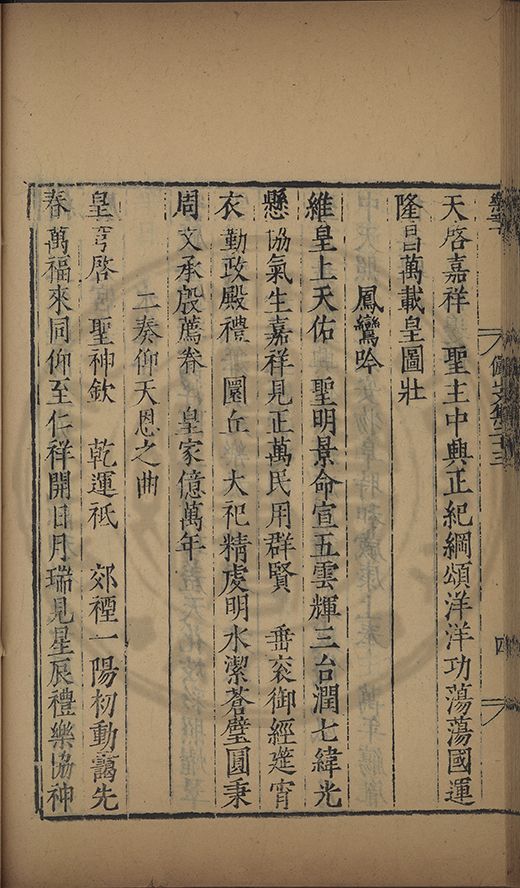 天啓嘉祥　聖主中興正紀綱頌洋洋功蕩蕩國運
隆昌萬載皇圖壯
鳳鸞吟
維皇上天佑　聖明景命宣五雲輝三台潤七緯光
懸協氣生嘉祥見正萬民用群賢　垂衮御經筵宵
衣勤政殿禮　圜丘大祀精虔明水潔蒼璧圓秉
周文承殷薦眷　皇家億萬年
二奏仰天恩之曲
皇穹啓　聖神欽　乾運祗　郊禋一陽初動靄先
春萬福來同仰至仁祥開日月瑞見星辰禮樂協神
四